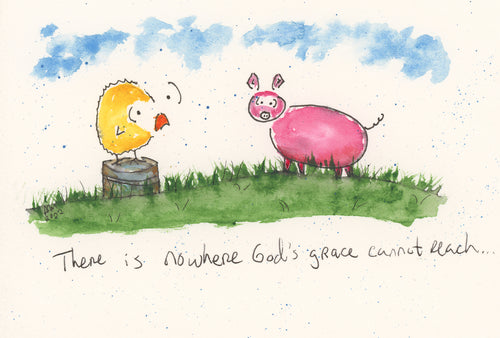 There is nowhere God's grace cannot reach...